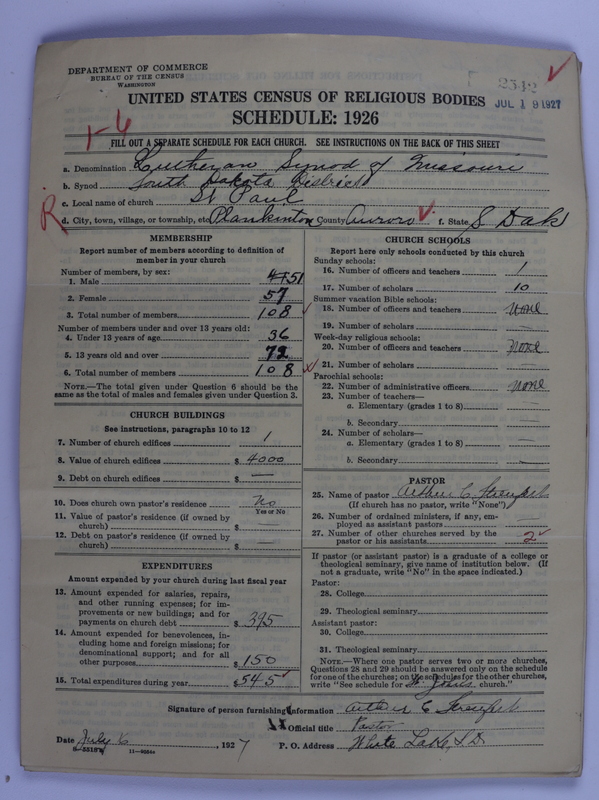 DEPARTMENT OF COMMERCE
BUREAU OF THE CENSUS
WASHINGTON
2542
JUL 19 1927
UNITED STATES CENSUS OF RELIGIOUS BODIES
SCHEDULE: 1926
1-6
FILL OUT A SEPARATE SCHEDULE FOR EACH CHURCH. SEE INSTRUCTIONS ON THE BACK OF THIS SHEET
a. Denomination Lutheran Synod of Missouri
b. Synod South Dakota District
c. Local name of church St Paul
R
d. City, town, village, or township, etc. Plankinton County Aurora f. State S Dak
MEMBERSHIP
Report number of members according to definition of member in your church
Number of members, by sex:
1. Male 51
2. Female 57
3. Total number of members 108
Number of members under and over 13 years old:
4. Under 13 years of age 36
5. 13 years old and over 72
6. Total number of members 108
NOTE.—The total given under Question 6 should be the same as the total of males and females given under Question 3.
CHURCH BUILDINGS
See instructions, paragraphs 10 to 12
7. Number of church edifices 1
8. Value of church edifices $ 4000
9. Debt on church edifices $ —
10. Does church own pastor's residence No
Yes or No
11. Value of pastor's residence (if owned by church) $
12. Debt on pastor's residence (if owned by church) $ —
EXPENDITURES
Amount expended by your church during last fiscal year
13. Amount expended for salaries, repairs, and other running expenses; for improvements or new buildings; and for payments on church debt $ 395
14. Amount expended for benevolences, including home and foreign missions; for denominational support; and for all other purposes $ 150
15. Total expenditures during year $ 545
CHURCH SCHOOLS
Report here only schools conducted by this church
Sunday schools:
16. Number of officers and teachers 1
17. Number of scholars 10
Summer vacation Bible schools:
18. Number of officers and teachers None
19. Number of scholars —
Week-day religious schools:
20. Number of officers and teachers None
21. Number of scholars —
Parochial schools:
22. Number of administrative officers None
23. Number of teachers—
a. Elementary (grades 1 to 8) —
b. Secondary —
24. Number of scholars—
a. Elementary (grades 1 to 8) —
b. Secondary —
PASTOR
25. Name of pastor Arthur C.
(If church has no pastor, write "None")
26. Number of ordained ministers, if any, employed as assistant pastors —
27. Number of other churches served by the pastor or his assistants 2
If pastor (or assistant pastor) is a graduate of a college or theological seminary, give name of institution below. (If not a graduate, write "No" in the space indicated.)
Pastor:
28. College
29. Theological seminary
Assistant pastor:
30. College
31. Theological seminary
NOTE.—Where one pastor serves two or more churches, Questions 28 and 29 should be answered only on the schedule for one of the churches; on the schedules for the other churches, write "See schedule for St Johns church."
Signature of person furnishing information Arthur C
Official title Pastor
Date July 6, 1927 P. O. Address White Lake, S.D.
11-9054